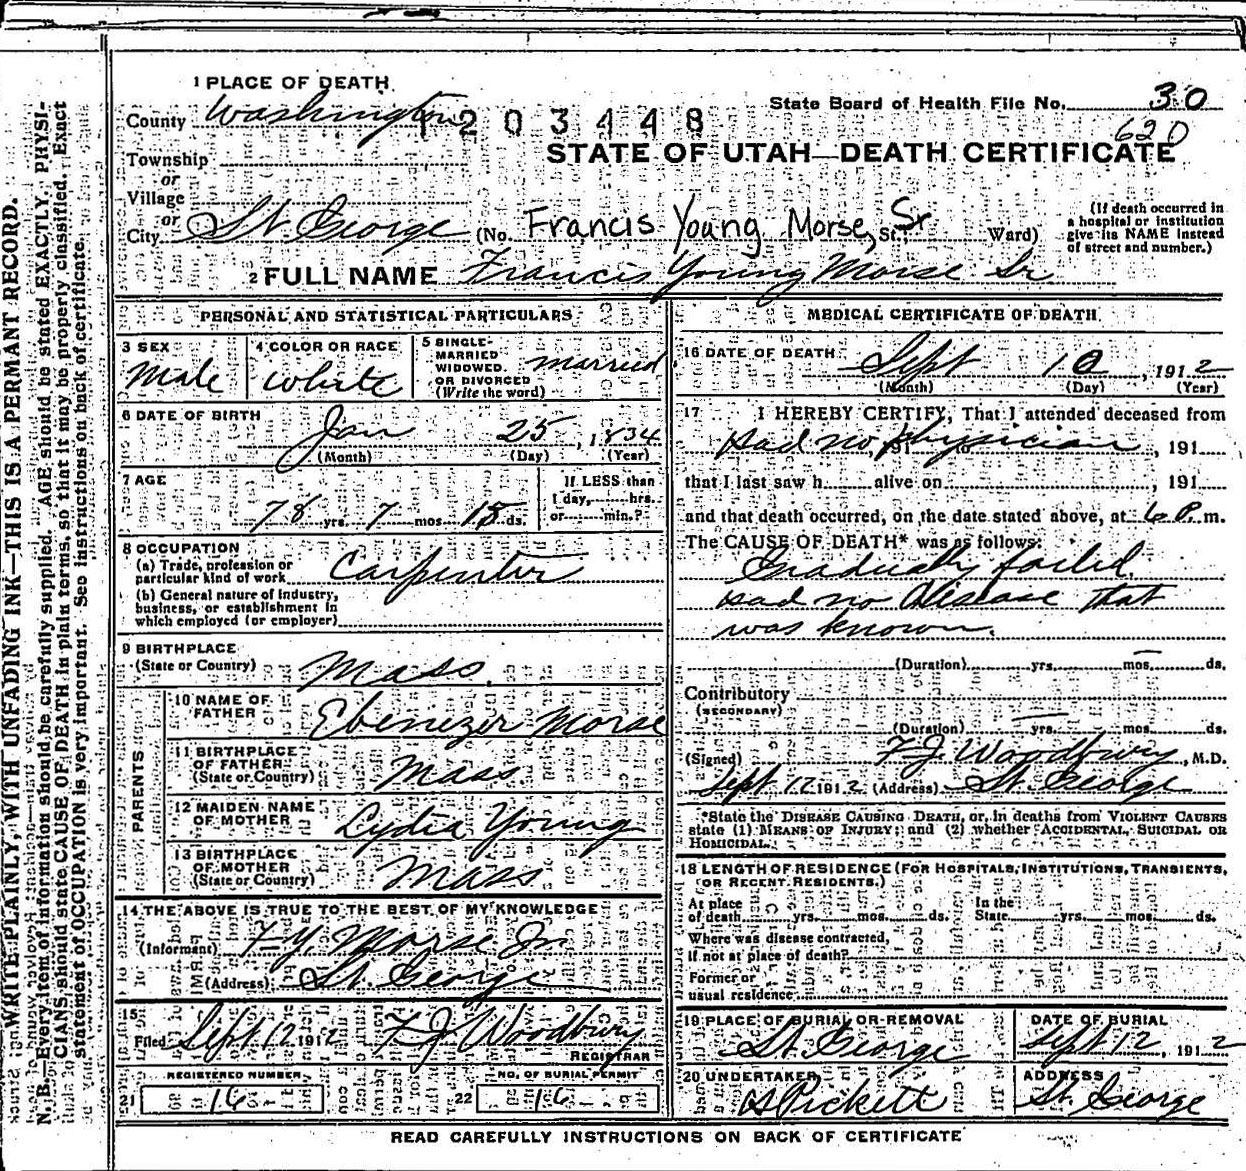 1 PLACE OF DEATH
County Washington
1203448
State Board of Health File No. 30
620
STATE OF UTAH—DEATH CERTIFICATE
Township
or
Village
or
City St. George (No. Francis Young Morse, Sr St.; Ward)
(If death occurred in a hospital or institution give its NAME instead of street and number.)
2 FULL NAME Francis Young Morse Sr
PERSONAL AND STATISTICAL PARTICULARS
3 SEX Male
4 COLOR OR RACE White
5 SINGLE- MARRIED WIDOWED. OR DIVORCED (Write the word) married
6 DATE OF BIRTH
Jan 25, 1834
(Month) (Day) (Year)
7 AGE
78 yrs. 7 mos. 15 ds.
If LESS than 1 day, hrs. or min.?
8 OCCUPATION
(a) Trade, profession or particular kind of work Carpenter
(b) General nature of industry, business, or establishment in which employed (or employer)
9 BIRTHPLACE
(State or Country) Mass.
PARENTS
10 NAME OF FATHER Ebenezer Morse
11 BIRTHPLACE OF FATHER (State or Country) Mass
12 MAIDEN NAME OF MOTHER Lydia Young
13 BIRTHPLACE OF MOTHER (State or Country) Mass
14 THE ABOVE IS TRUE TO THE BEST OF MY KNOWLEDGE
(Informant) F. Y. Morse Jr
(Address) St. George
15
Filed Sept 12 1912 F J Woodbury
REGISTRAR
REGISTERED NUMBER
21 16
NO. OF BURIAL PERMIT
22 16
MEDICAL CERTIFICATE OF DEATH
16 DATE OF DEATH Sept 10, 1912
(Month) (Day) (Year)
17 I HEREBY CERTIFY, That I attended deceased from
Had no physician, 191
that I last saw h alive on , 191
and that death occurred, on the date stated above, at 6 P. m.
The CAUSE OF DEATH* was as follows:
Gradually failed.
Had no disease that
was known.
(Duration) yrs. mos. ds.
Contributory
(SECONDARY)
(Duration) yrs. mos. ds.
(Signed) F J Woodbury, M.D.
Sept 12 1912 (Address) St. George
*State the DISEASE CAUSING DEATH, or, in deaths from VIOLENT CAUSES
state (1) MEANS OF INJURY; and (2) whether ACCIDENTAL, SUICIDAL OR
HOMICIDAL.
18 LENGTH OF RESIDENCE (FOR HOSPITALS, INSTITUTIONS, TRANSIENTS,
OR RECENT RESIDENTS.)
At place of death yrs. mos. ds. In the State yrs. mos. ds.
Where was disease contracted,
if not at place of death?
Former or
usual residence
19 PLACE OF BURIAL OR REMOVAL
St. George
DATE OF BURIAL
Sept 12, 1912
20 UNDERTAKER
Pickett
ADDRESS
St. George
READ CAREFULLY INSTRUCTIONS ON BACK OF CERTIFICATE
WRITE PLAINLY, WITH UNFADING INK—THIS IS A PERMANT RECORD.
N. B. Every item of information should be carefully supplied. AGE should be stated EXACTLY. PHYSI-
CIANS should state CAUSE OF DEATH in plain terms, so that it may be properly classified. Exact
statement of OCCUPATION is very important. See instructions on back of certificate.